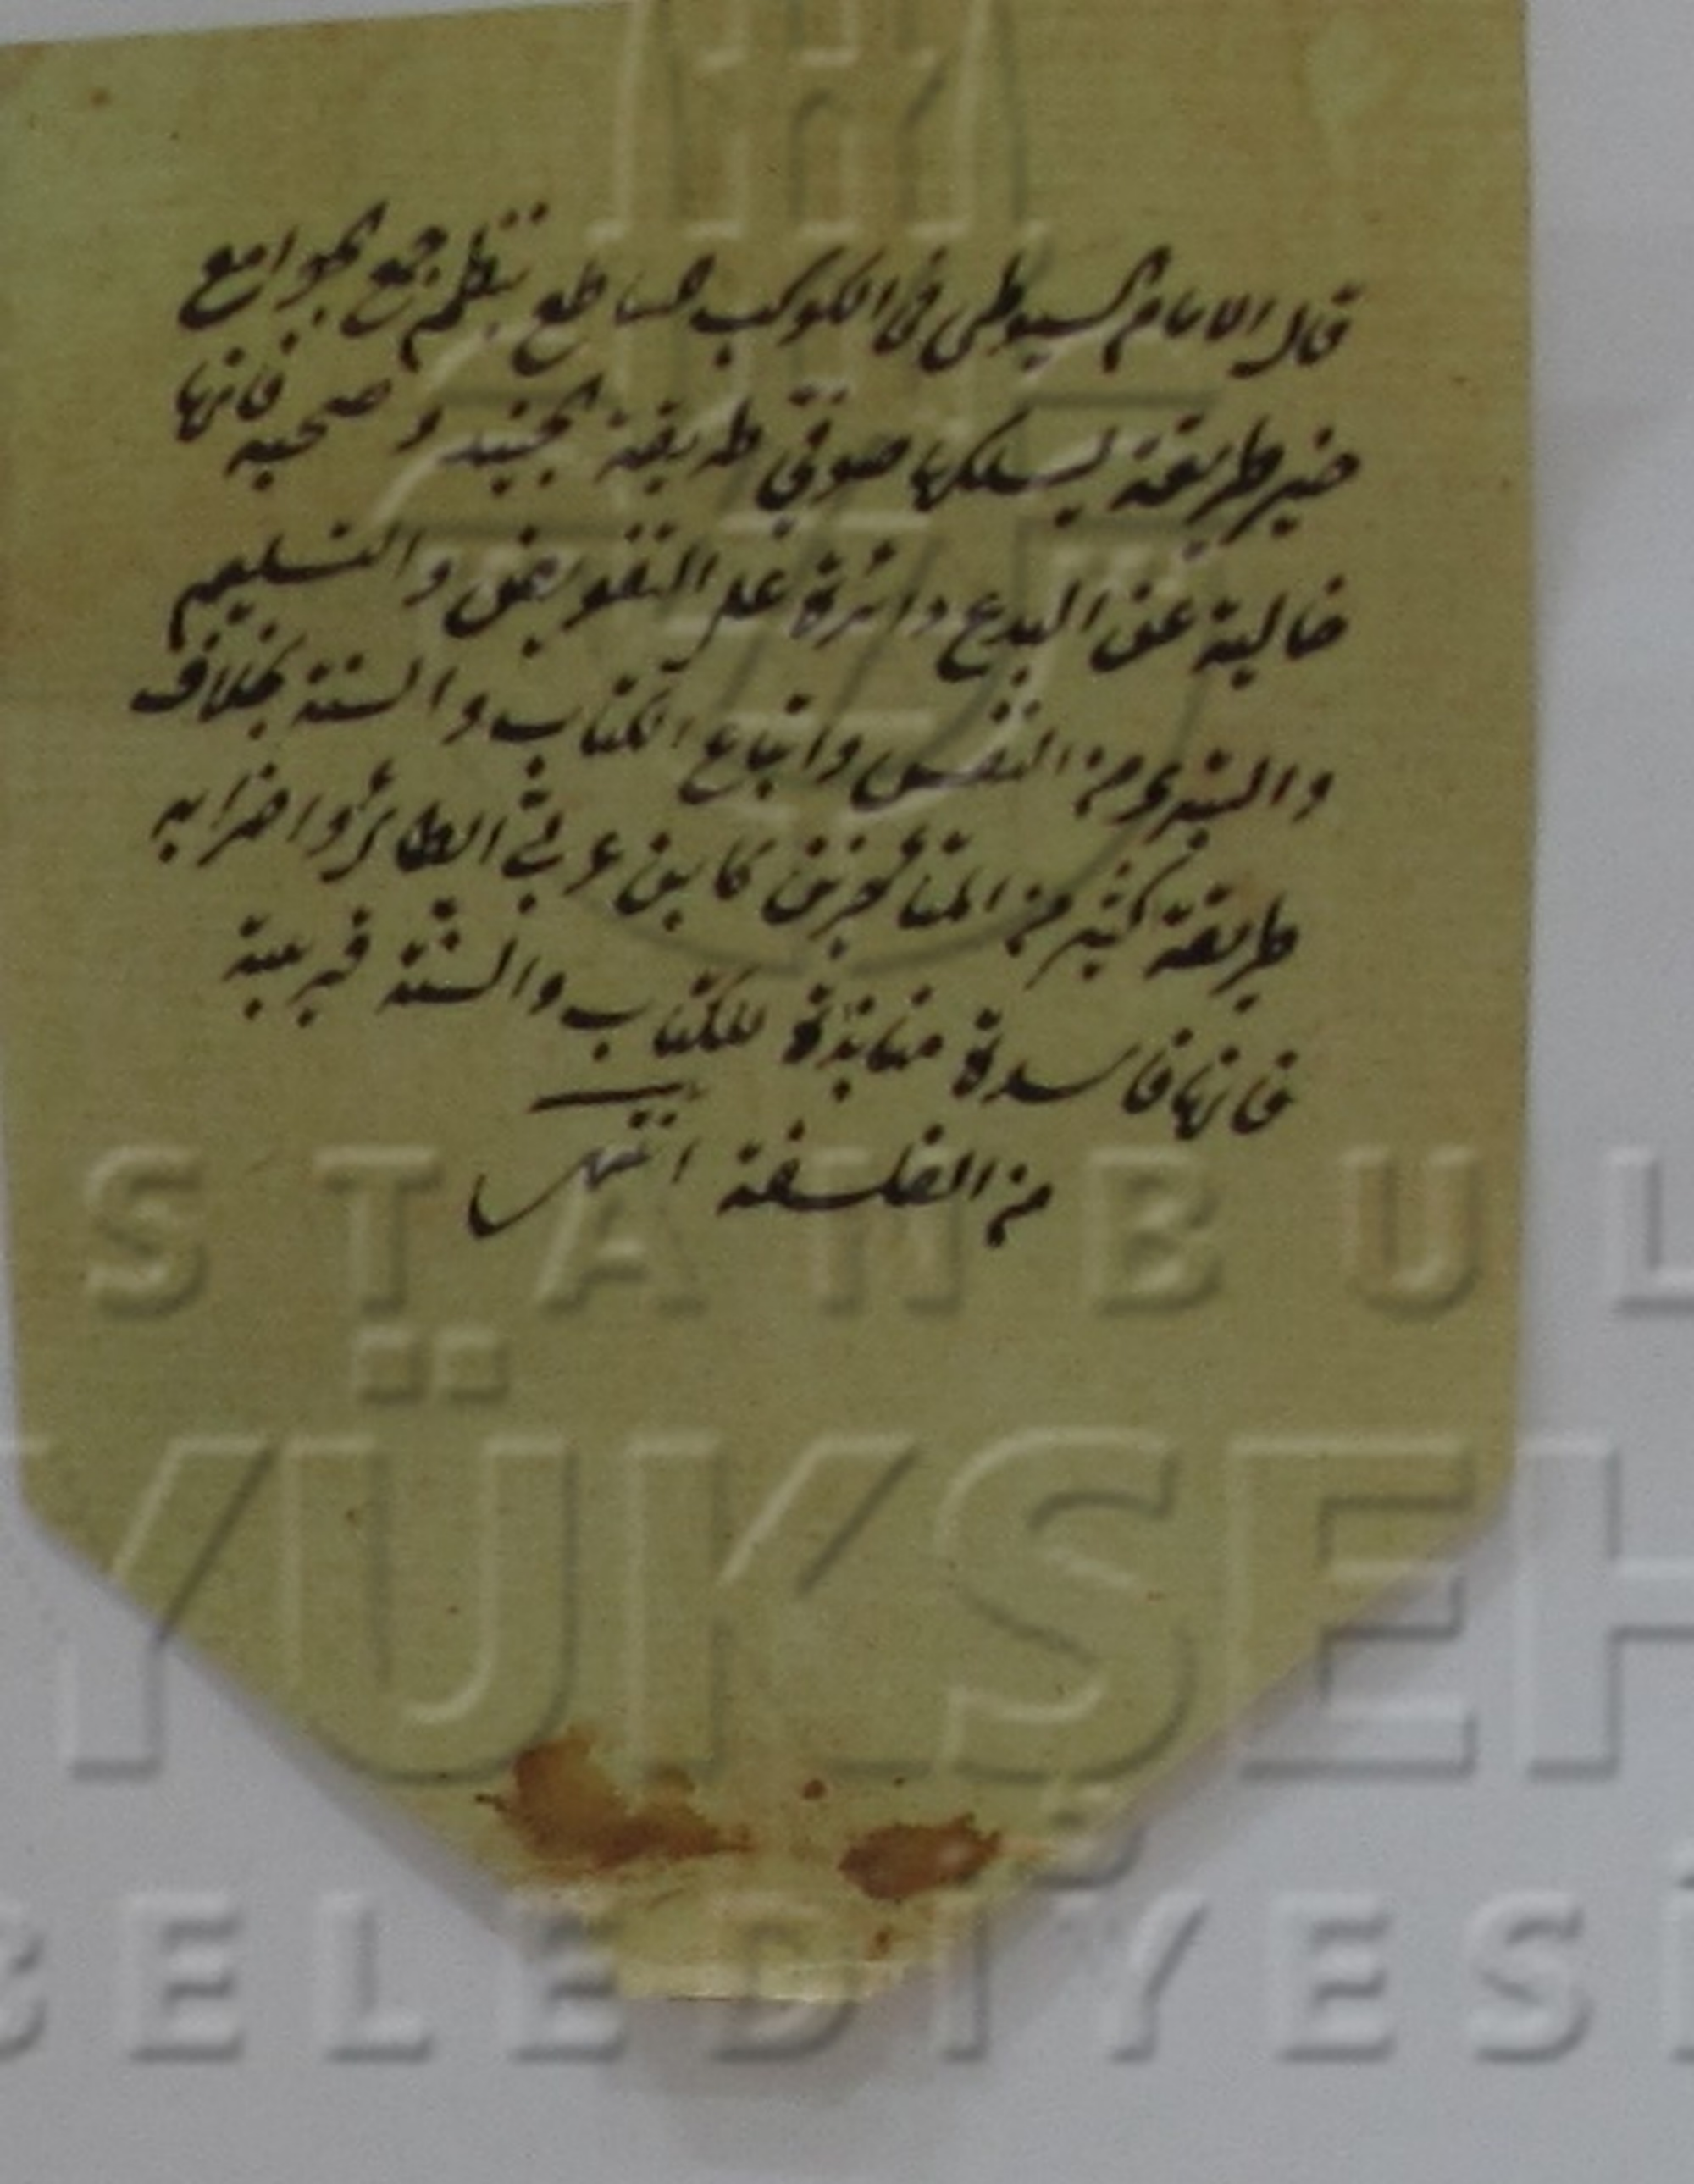 قال الامام السيوطى فى الكوكب الساطع بنظم جمع الجوامع
خير طريقة يسلكها صوفى طريقة الجنيد و صحبه فانها
خالية عن البدع دائرة على التفويض والتسليم
والتبرى من النفس واتباع الكتاب والسنة بخلاف
طريقة كثير من المتأخرين كابن عربى الطائى واضرابه
فانها فاسدة منابذة للكتاب والسنة قريبة
من الفلسفة انتهى
STANBUL
YÜKŞEH
BELEDİYESİ